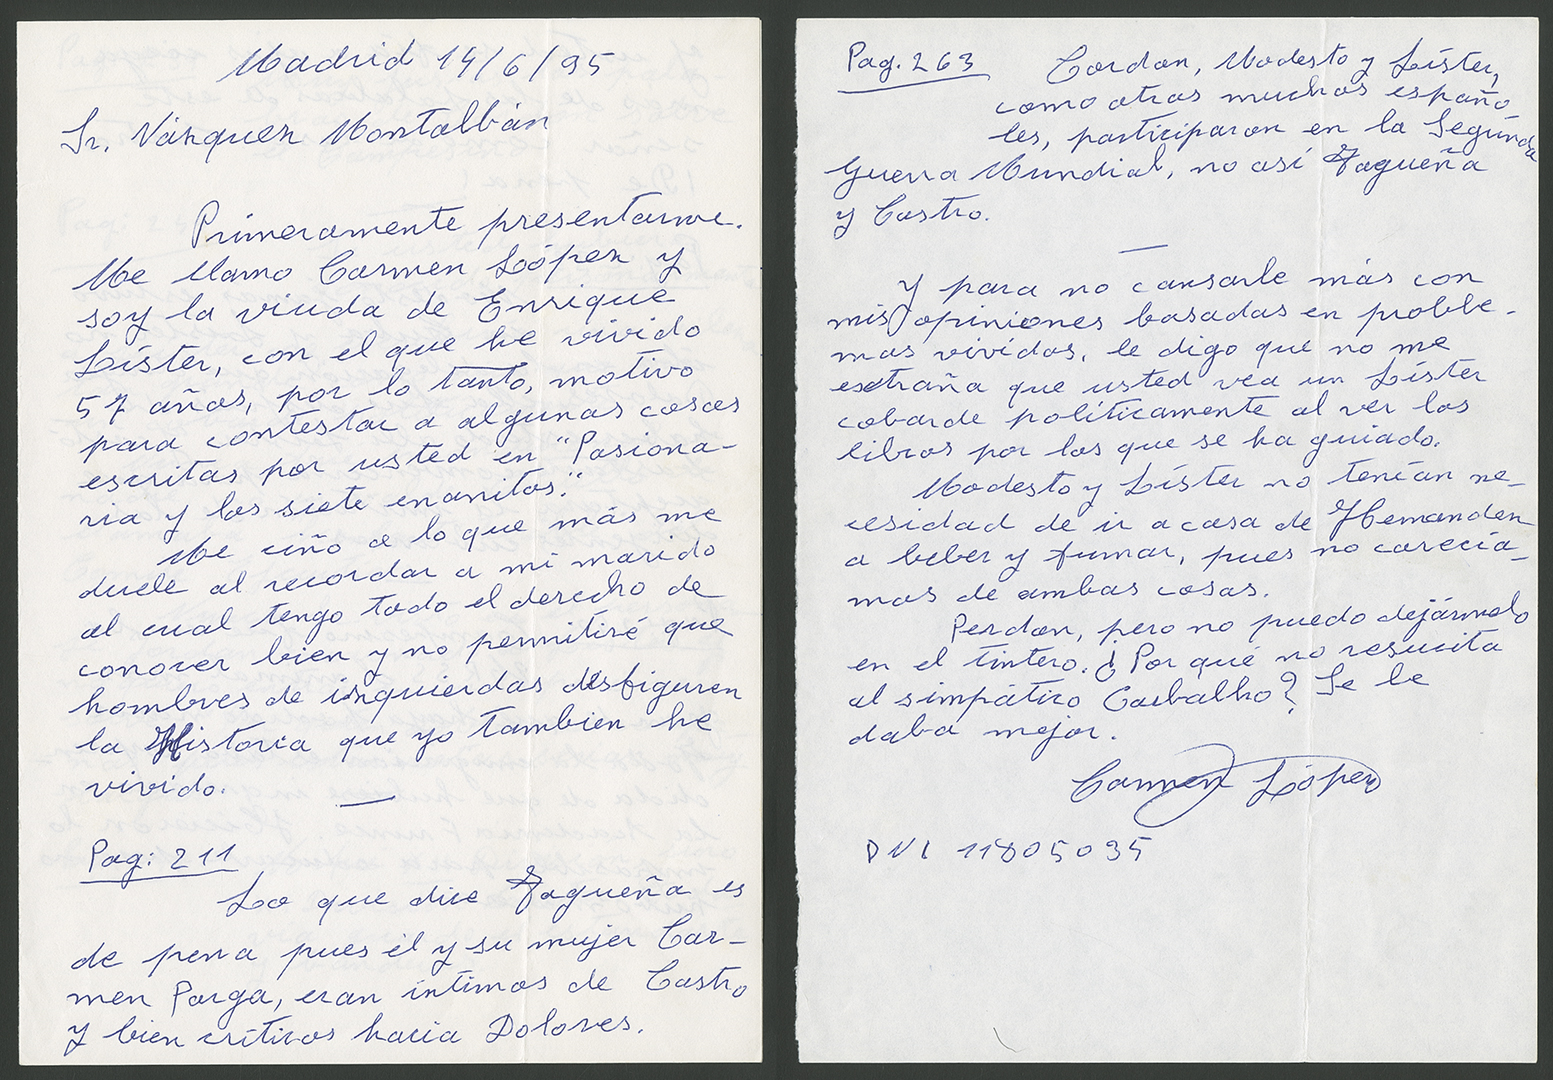 Madrid 14/6/95
Sr. Vázquez Montalbán
Primeramente presentarme.
Me llamo Carmen López y
soy la viuda de Enrique
Líster, con el que he vivido
57 años, por lo tanto, motivo
para contestar a algunas cosas
escritas por usted en "Pasiona-
ria y los siete enanitos."
Me ciño a lo que más me
duele al recordar a mi marido
al cual tengo todo el derecho de
conocer bien y no permitiré que
hombres de izquierdas desfiguren
la Historia que yo tambien he
vivido.
Pag: 211
Lo que dice Tagueña es
de pena pues él y su mujer Car-
men Parga, eran íntimos de Castro
y bien críticos hacia Dolores.
Pag. 263
Cordon, Modesto y Líster,
como otros muchos españo
les, participaron en la Segunda
Guerra Mundial, no así Tagueña
y Castro.
Y para no cansarle más con
mis opiniones basadas en proble-
mas vividos, le digo que no me
extraña que usted vea un Líster
cobarde políticamente al ver los
libros por los que se ha guiado.
Modesto y Líster no tenían ne-
cesidad de ir a casa de Hernandez
a beber y fumar, pues no carecía-
mos de ambas cosas.
Perdon, pero no puedo dejármelo
en el tintero. ¿Por qué no resucita
al simpático Carbalho? Se le
daba mejor.
Carmen López
DNI 11805035